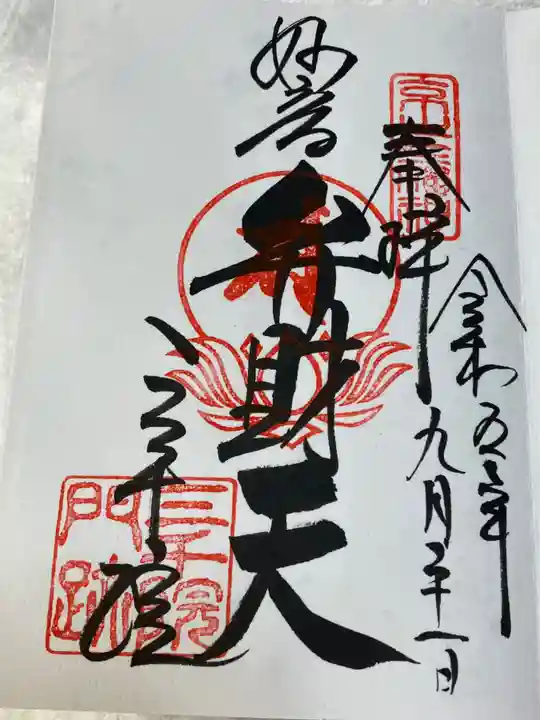 令和五年
九月二十一日
奉拝
妙音
弁財天
三千院
三千院
門跡